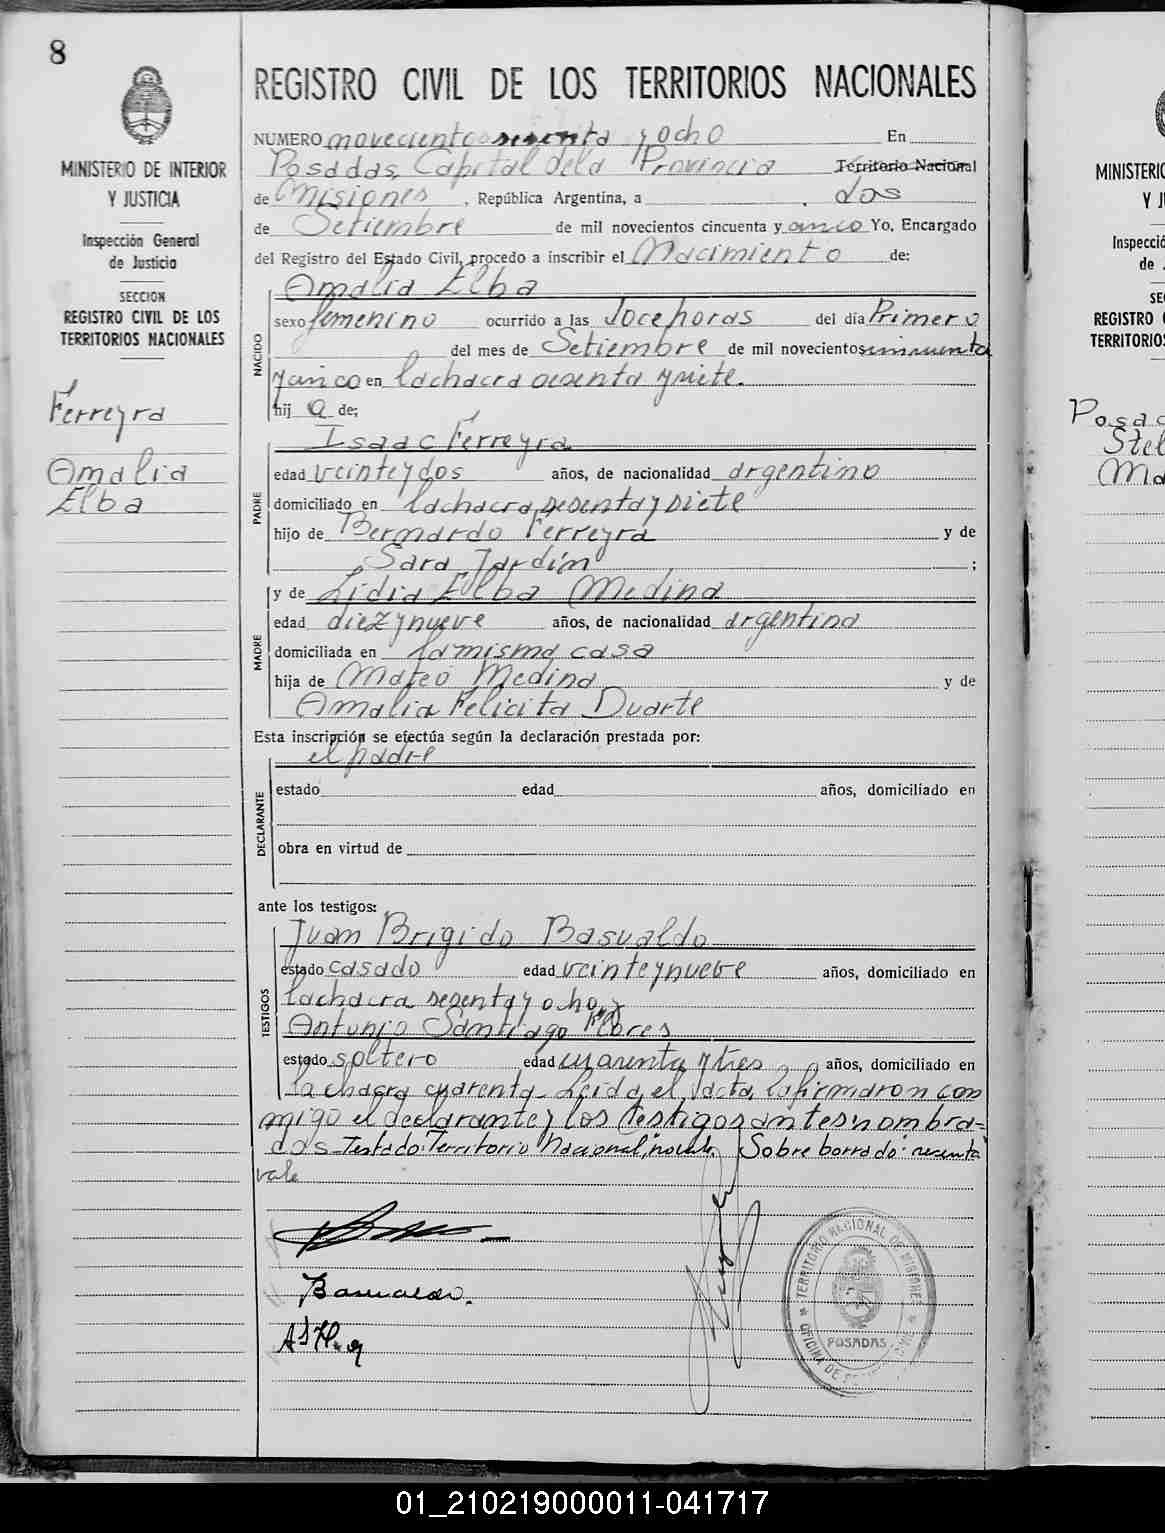 8
MINISTERIO DE INTERIOR
Y JUSTICIA
Inspección General
de Justicia
SECCION
REGISTRO CIVIL DE LOS
TERRITORIOS NACIONALES
Ferreyra
Amalia
Elba
REGISTRO CIVIL DE LOS TERRITORIOS NACIONALES
NUMERO novecientos sesenta y ocho En
Posadas, Capital de la Provincia Territorio Nacional
de Misiones, República Argentina, a dos
de Setiembre de mil novecientos cincuenta y cinco Yo, Encargado
del Registro del Estado Civil, procedo a inscribir el Nacimiento de:
NACIDO
Amalia Elba
sexo femenino ocurrido a las doce horas del día Primero
del mes de Setiembre de mil novecientos cincuenta
y cinco en la chacra sesenta y siete.
hij a de:
PADRE
Isaac Ferreyra
edad veinte y dos años, de nacionalidad argentino
domiciliado en la chacra sesenta y siete
hijo de Bernardo Ferreyra y de
Sara Jardín ;
MADRE
y de Lidia Elba Medina
edad diez y nueve años, de nacionalidad argentina
domiciliada en la misma casa
hija de Mateo Medina y de
Amalia Felicita Duarte
Esta inscripción se efectúa según la declaración prestada por:
DECLARANTE
el padre
estado edad años, domiciliado en
obra en virtud de
ante los testigos:
TESTIGOS
Juan Brigido Basualdo
estado casado edad veinte y nueve años, domiciliado en
la chacra sesenta y ocho y
Antonio Santiago Flores
estado soltero edad cuarenta y tres años, domiciliado en
la chacra cuarenta. Leida el acta, la firmaron con
migo el declarante y los testigos antes nombra=
dos. Testado: "Territorio Nacional", no vale. Sobre borrado: "sesenta"
vale
Basualdo.
TERRITORIO NACIONAL DE MISIONES
POSADAS
MINISTERIO
Y J
Inspecció
de J
SE
REGISTRO C
TERRITORIOS
Posad
Stel
Ma
01_210219000011-041717